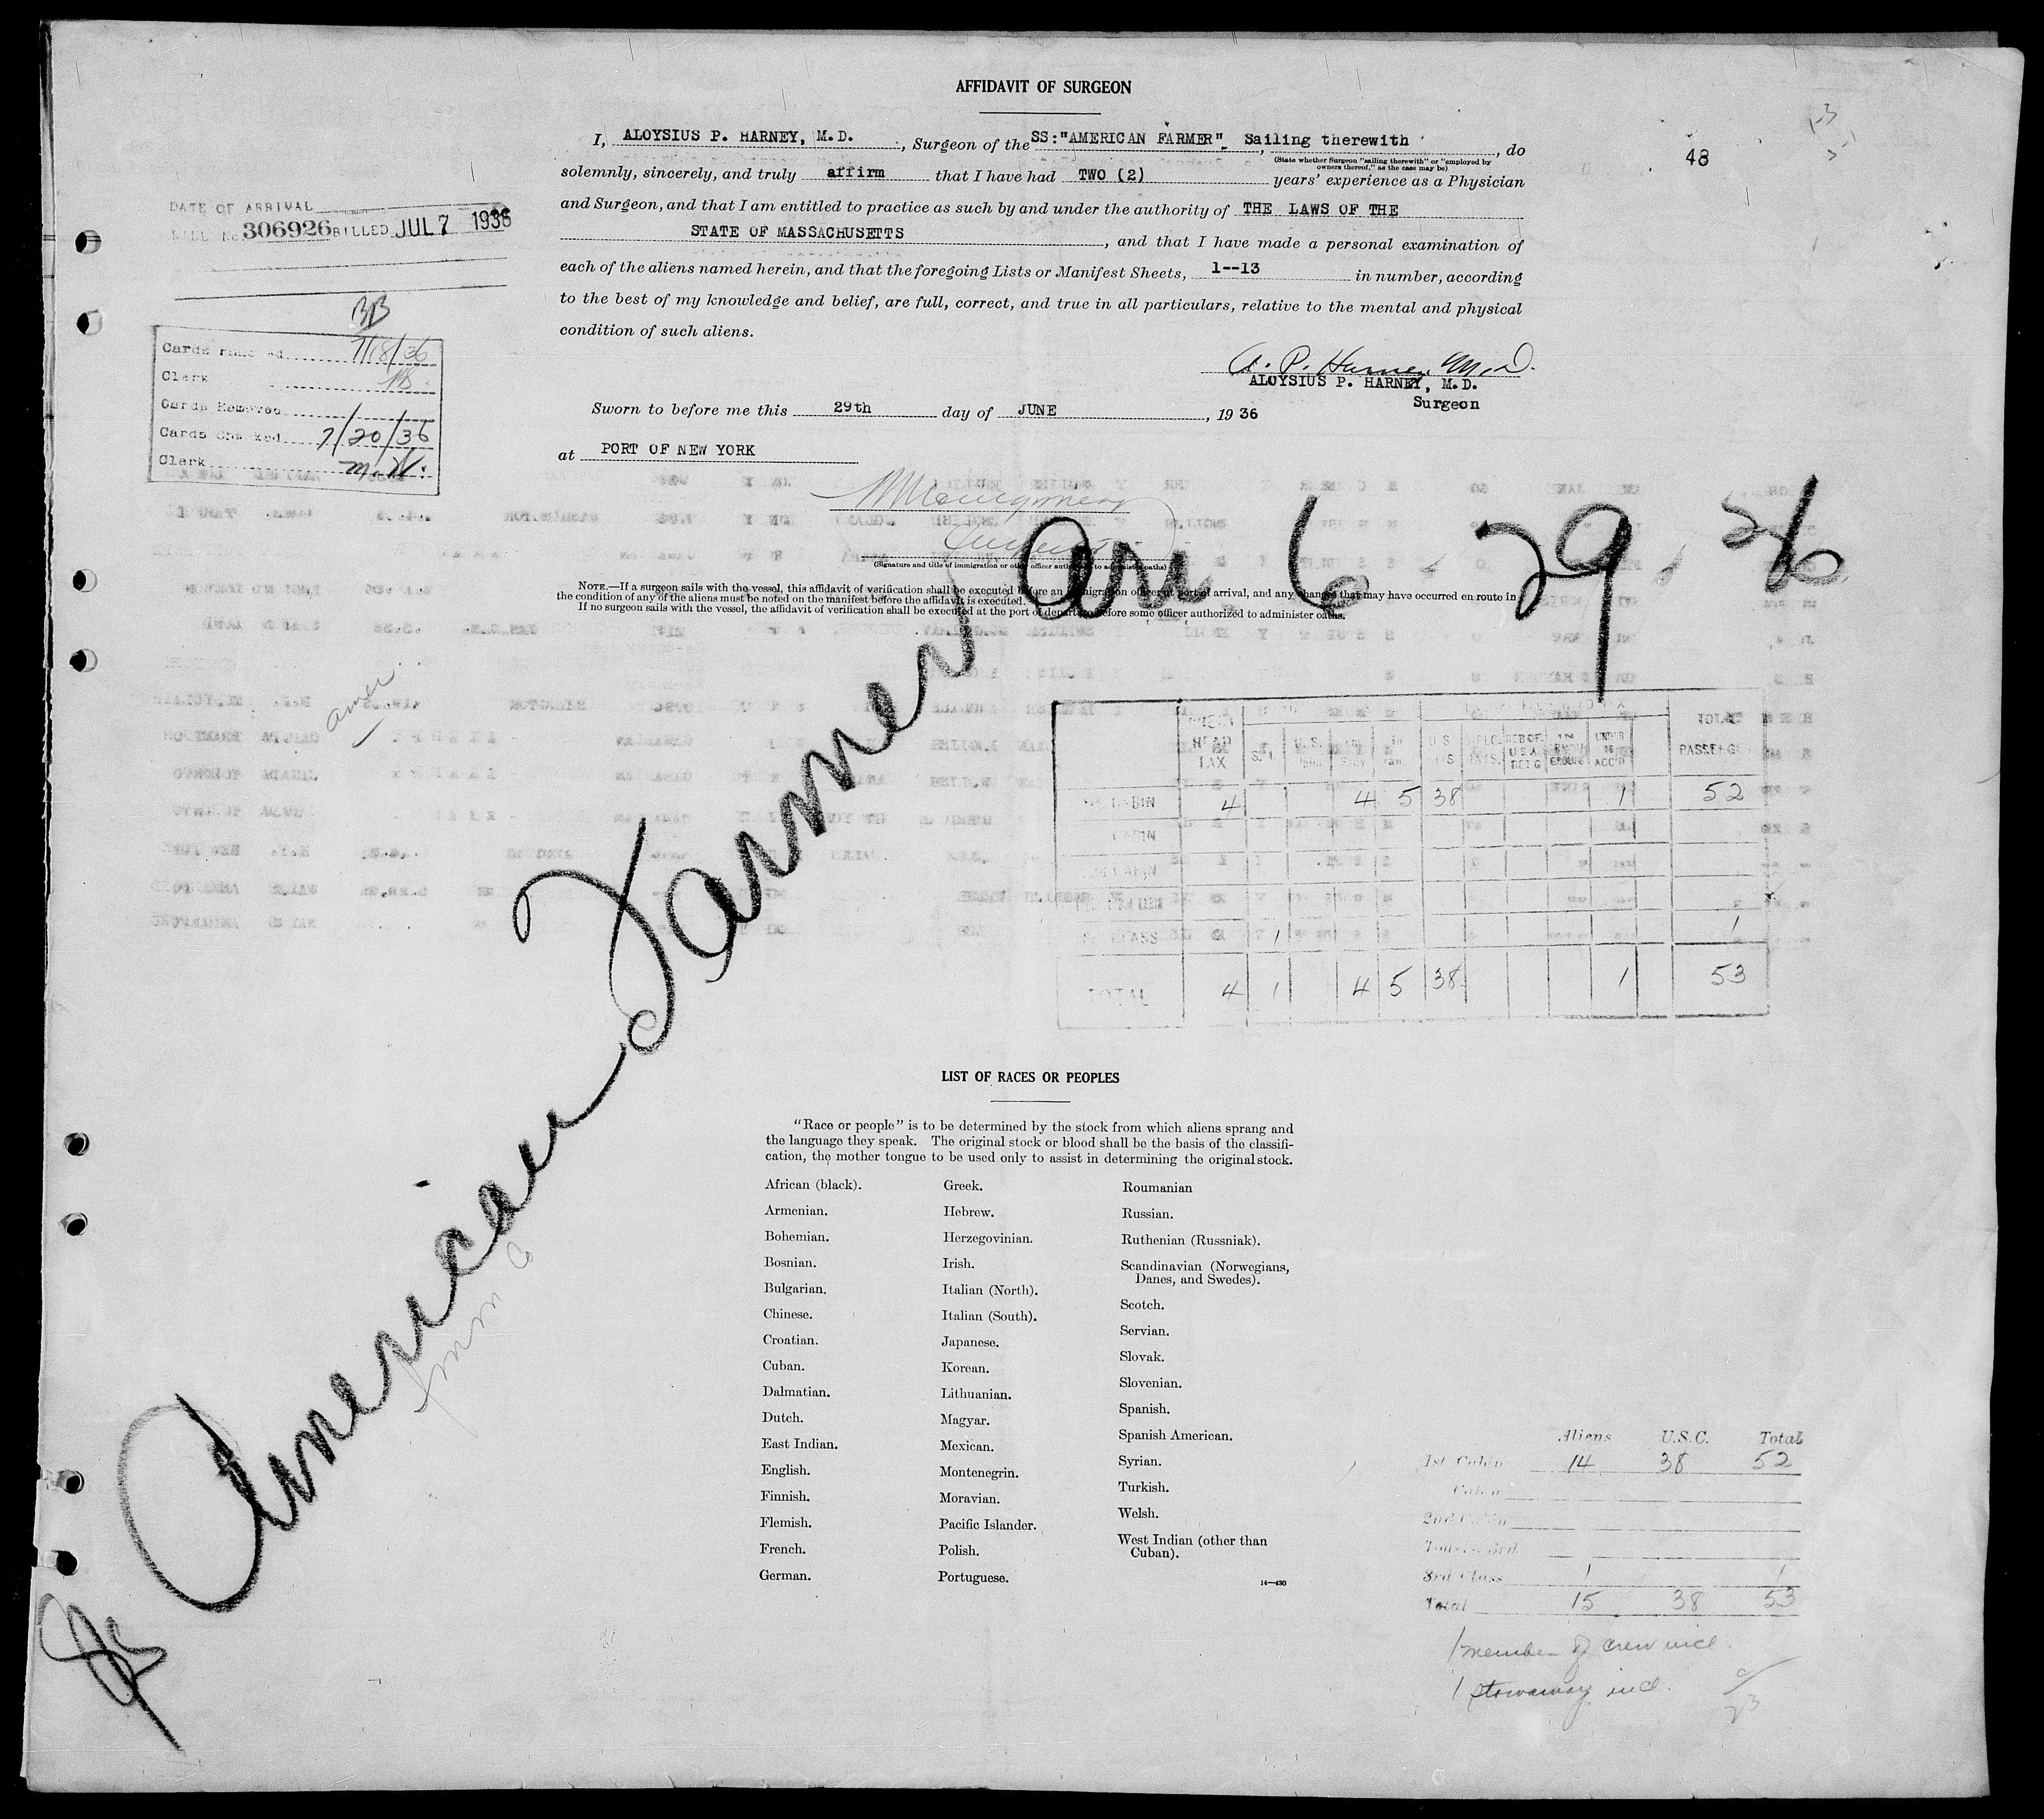 AFFIDAVIT OF SURGEON
I, ALOYSIUS P. HARNEY, M.D. , Surgeon of the SS:"AMERICAN FARMER", Sailing therewith , do
(State whether Surgeon "sailing therewith" or "employed by
owners thereof," as the case may be)
48
solemnly, sincerely, and truly affirm that I have had TWO (2) years' experience as a Physician
and Surgeon, and that I am entitled to practice as such by and under the authority of THE LAWS OF THE
STATE OF MASSACHUSETTS , and that I have made a personal examination of
each of the aliens named herein, and that the foregoing Lists or Manifest Sheets, 1--13 in number, according
to the best of my knowledge and belief, are full, correct, and true in all particulars, relative to the mental and physical
condition of such aliens.
A. P. Harney M.D.
ALOYSIUS P. HARNEY, M.D.
Surgeon
Sworn to before me this 29th day of JUNE , 19 36
at PORT OF NEW YORK
(Signature and title of immigration or other officer authorized to administer oaths)
NOTE.—If a surgeon sails with the vessel, this affidavit of verification shall be executed before an immigration officer at port of arrival, and any changes that may have occurred en route in
the condition of any of the aliens must be noted on the manifest before the affidavit is executed.
If no surgeon sails with the vessel, the affidavit of verification shall be executed at the port of departure before some officer authorized to administer oaths.
DATE OF ARRIVAL
BILL No 306926 BILLED JUL 7 1936
BB
Cards 7/18/36
Clerk
Cards Removed
Cards Checked 7/20/36
Clerk M.W.
amer
American Farmer arr 6 - 29 - 36
HEAD TAX
U.S.
DIPLO.
UNDER 16 ACC'P
TOTAL PASSENGERS
CABIN 4 4 5 38 1 52
CABIN
CABIN
CLASS 1 1
TOTAL 4 1 4 5 38 1 53
LIST OF RACES OR PEOPLES
"Race or people" is to be determined by the stock from which aliens sprang and
the language they speak. The original stock or blood shall be the basis of the classifi-
cation, the mother tongue to be used only to assist in determining the original stock.
African (black).
Armenian.
Bohemian.
Bosnian.
Bulgarian.
Chinese.
Croatian.
Cuban.
Dalmatian.
Dutch.
East Indian.
English.
Finnish.
Flemish.
French.
German.
Greek.
Hebrew.
Herzegovinian.
Irish.
Italian (North).
Italian (South).
Japanese.
Korean.
Lithuanian.
Magyar.
Mexican.
Montenegrin.
Moravian.
Pacific Islander.
Polish.
Portuguese.
Roumanian
Russian.
Ruthenian (Russniak).
Scandinavian (Norwegians,
Danes, and Swedes).
Scotch.
Servian.
Slovak.
Slovenian.
Spanish.
Spanish American.
Syrian.
Turkish.
Welsh.
West Indian (other than
Cuban).
14—430
Aliens U.S.C. Total
1st Cabin 14 38 52
Cabin
2nd Cabin
3rd Class 1 1
Total 15 38 53
1 member of crew incl.
1 stowaway incl.